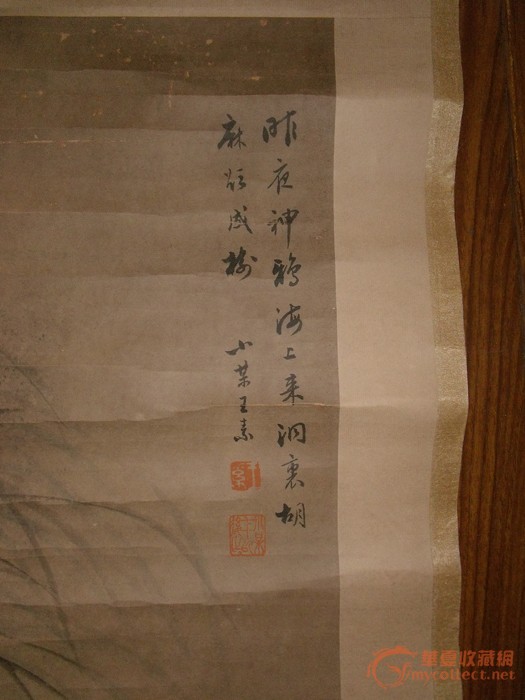 昨夜神鸦海上来洞裏胡
麻飯成樹
小某王素
華夏收藏網
mycollect.net